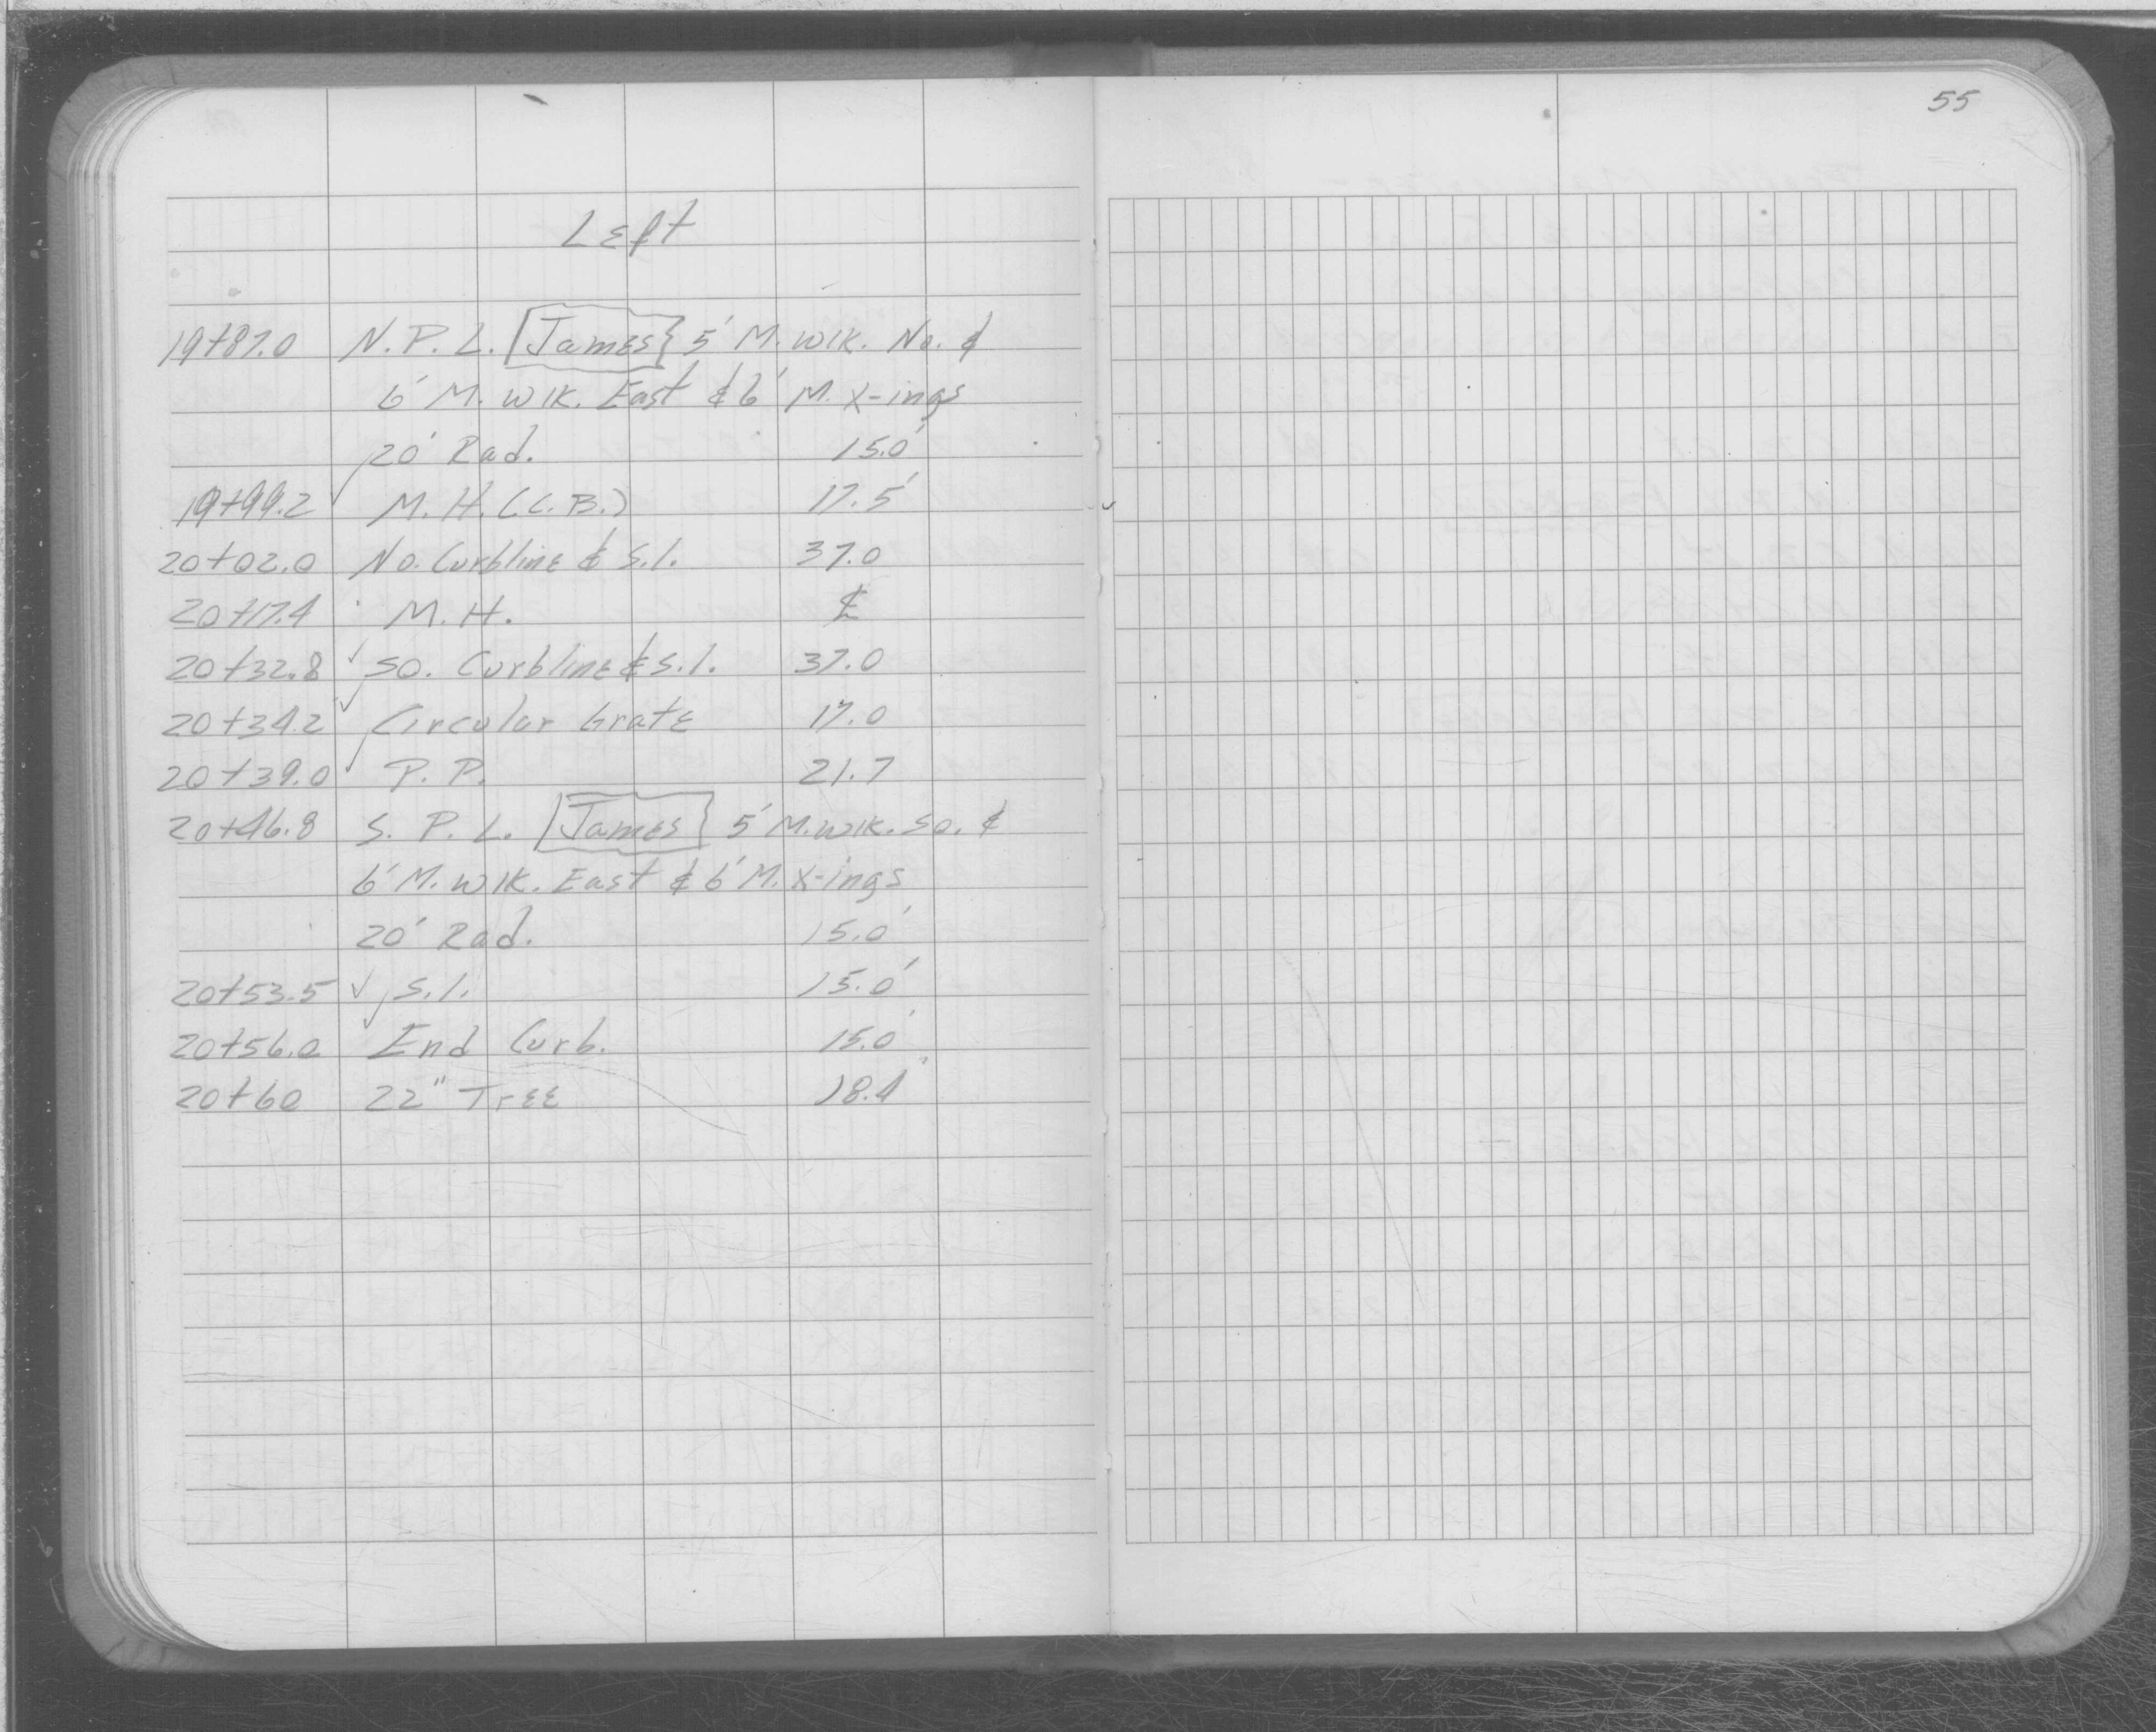 55
Left
19+87.0 N.P.L. [James] 5' M. Wlk. No. &
6' M. Wlk. East & 6' M. X-ings
20' Rad. 15.0'
19+99.2 ✓ M.H. (C.B.) 17.5'
20+02.0 No. Curbline & S.I. 37.0
20+17.4 M.H. ℄
20+32.8 ✓ So. Curbline & S.I. 37.0
20+34.2 ✓ Circular Grate 17.0
20+39.0 ✓ P.P. 21.7
20+46.8 S.P.L. [James] 5' M. Wlk. So. &
6' M. Wlk. East & 6' M. X-ings
20' Rad. 15.0'
20+53.5 ✓ S.I. 15.0'
20+56.0 ✓ End Curb. 15.0'
20+60 22" Tree 18.4'